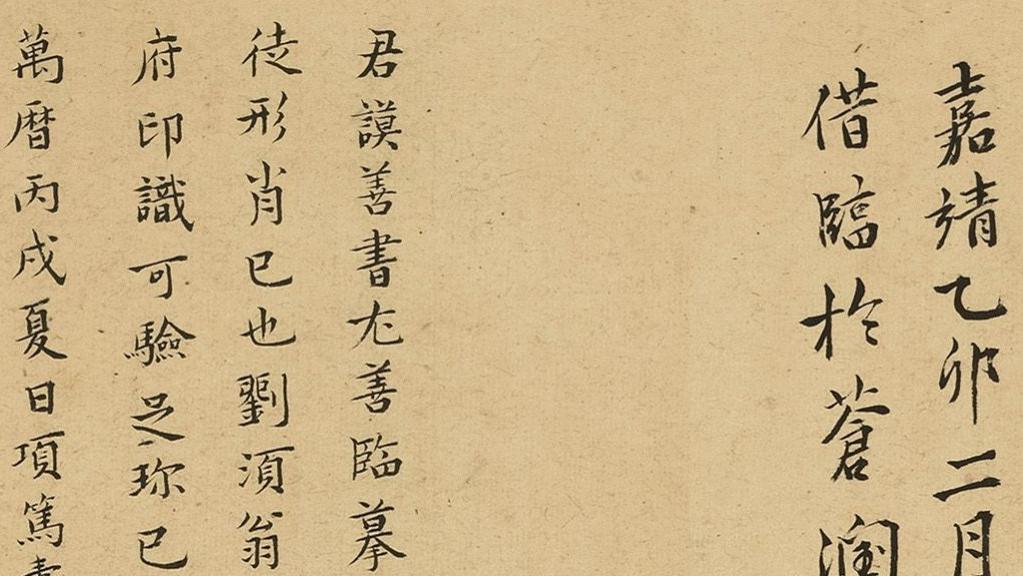 嘉靖乙卯二月
借臨於蒼潤
君謨善書尤善臨摹
徒形肖已也劉須翁
府印識可驗足珎已
萬曆丙戌夏日項篤